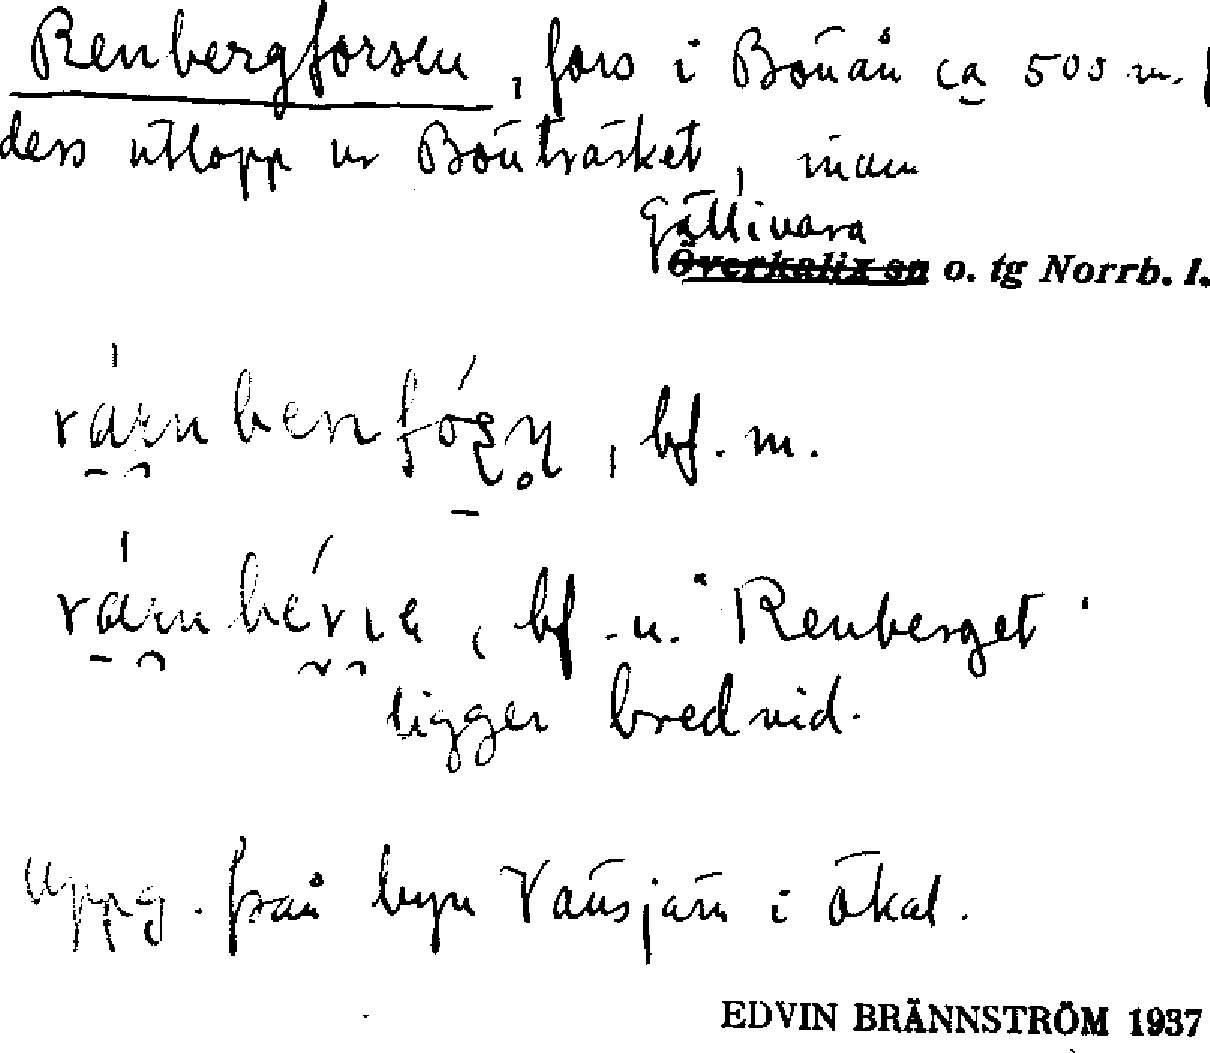 Renbergforsen, fors i Bönån ca 500 m. f
dess utlopp ur Bönträsket, inom
Gällivara
Överkalix sn o. tg Norrb. l.
bf. m.
bf. n. "Renberget"
ligger bredvid.
Uppg. från byn Vänsjärn i Ökal.
EDVIN BRÄNNSTRÖM 1937